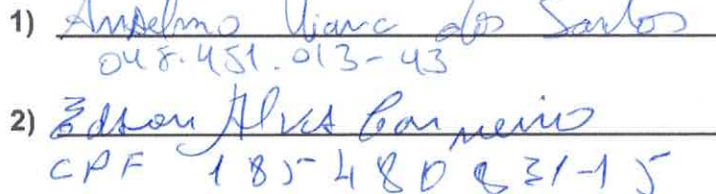 1) Anselmo Viana dos Santos
048.451.013-43
2) Edson Alves Carneiro
CPF 185480831-15